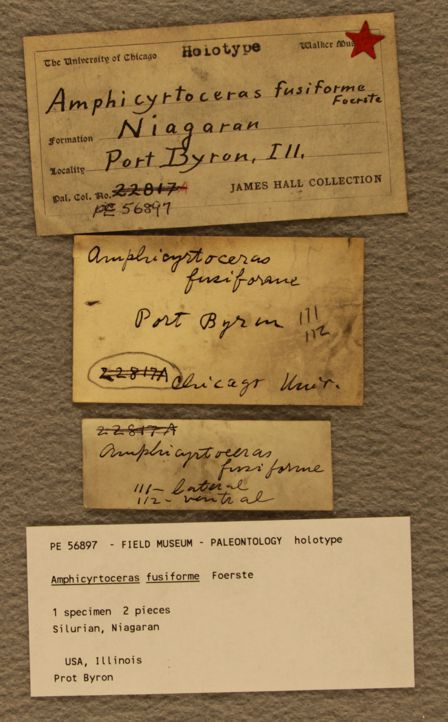 The University of Chicago Holotype Walker
Amphicyrtoceras fusiforme
Foerste
Formation Niagaran
Locality Port Byron, Ill.
Pal. Col. No. 22817A JAMES HALL COLLECTION
PE 56897
Amphicyrtoceras
fusiforme
Port Byron 111
112
22817A Chicago Univ.
22817A
Amphicyrtoceras
fusiforme
111- lateral
112- ventral
PE 56897 - FIELD MUSEUM - PALEONTOLOGY holotype
Amphicyrtoceras fusiforme Foerste
1 specimen 2 pieces
Silurian, Niagaran
USA, Illinois
Prot Byron